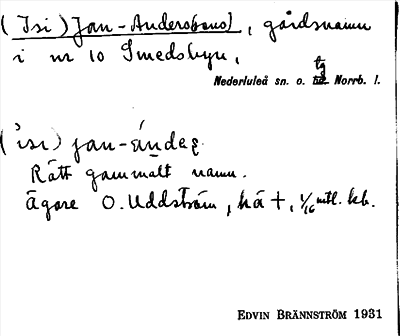 (Isi) Jan-Anders(ens), gårdsnamn
i nr 10 Smedsbyn,
Nederluleå sn. o. tg Norrb. l.
(isi) jan-ándeʂ.
Rätt gammalt namn.
Ägare O. Uddström, hå +, 1/16 mtl. kb.
EDVIN BRÄNNSTRÖM 1931